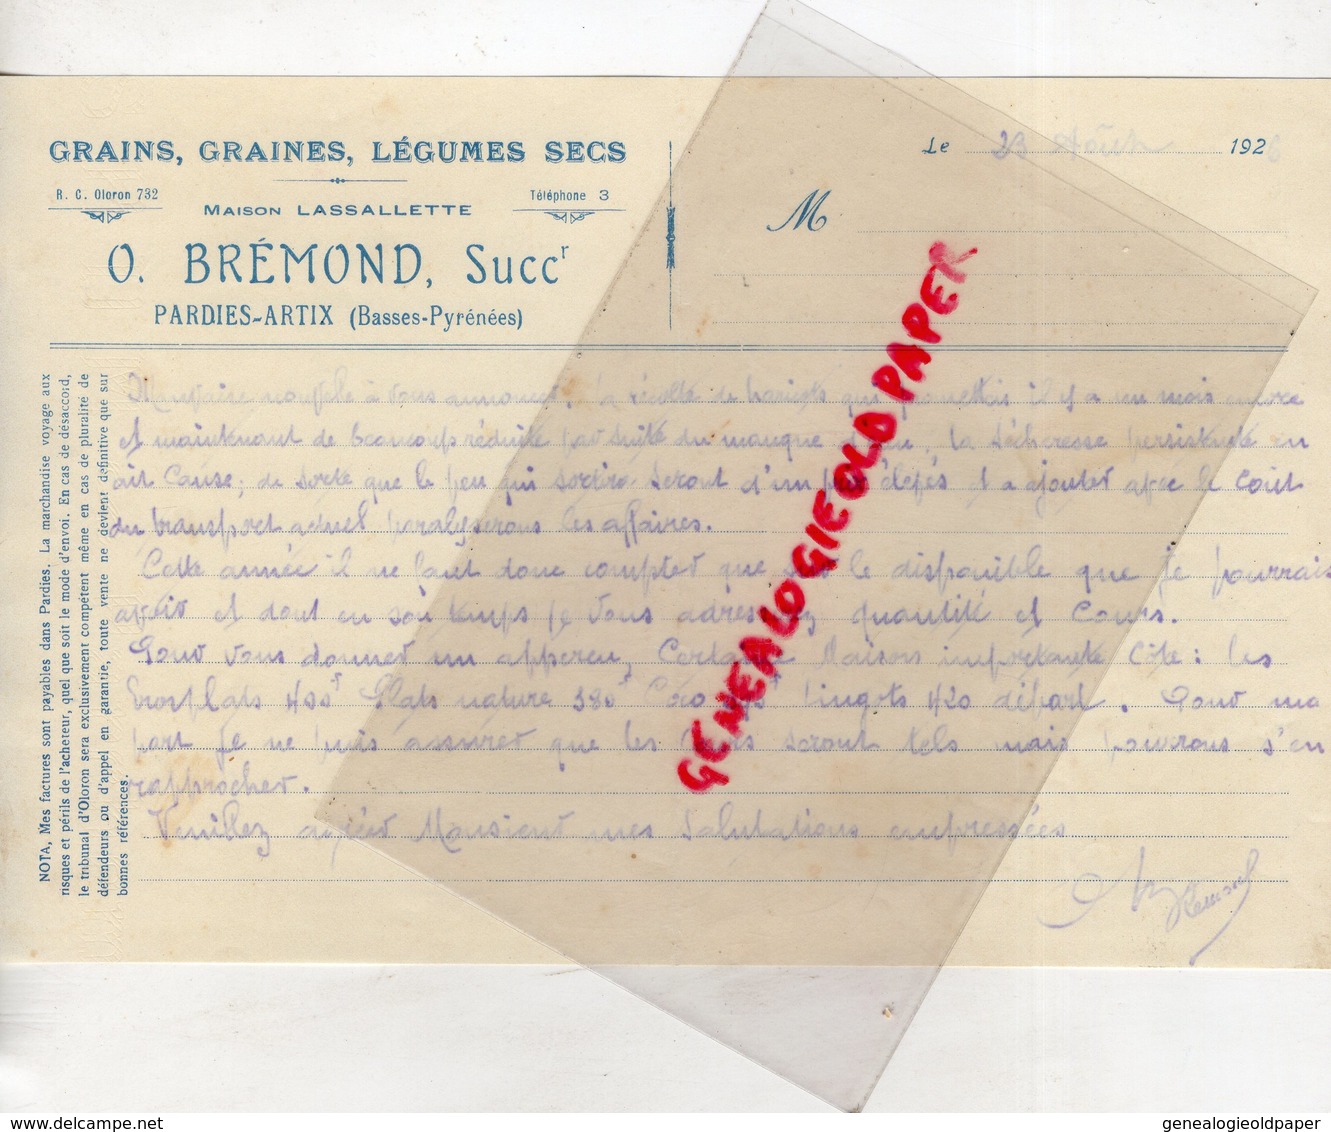 GRAINS, GRAINES, LÉGUMES SECS
R. C. Oloron 732
Téléphone 3
MAISON LASSALLETTE
O. BRÉMOND, Succr
PARDIES-ARTIX (Basses-Pyrénées)
Le 23 Août 192
M
NOTA, Mes factures sont payables dans Pardies. La marchandise voyage aux
risques et périls de l'acheteur, quel que soit le mode d'envoi. En cas de désaccord,
le tribunal d'Oloron sera exclusivement compétent même en cas de pluralité de
défendeurs ou d'appel en garantie, toute vente ne devient définitive que sur
bonnes références.
Mauvaise nouvelle à vous annoncer, la récolte de haricots qui promettais il y a un mois encore
et maintenant de beaucoup réduite par suite du manque d'eau, la sécheresse persistante en
ait cause; de sorte que le peu qui sortira seront d'un prix élevés et a ajouter avec le cout
du transport actuel paralyserons les affaires.
Cette année il ne faut donc compter que sur le disponible que je pourrais
avoir et dont en son temps je vous adresserez quantité et cours.
Pour vous donner un appercu, Certaine Maisons importante Côte: les
Grosplats 400 Plats nature 380 Cocos lingots 420 départ. Pour ma
part je ne puis assurer que les cours seront tels mais pourrons s'en
rapprocher.
Veuillez agréer Monsieur mes Salutations empressées
Bremond
GENEALOGIEOLDPAPER
genealogieoldpaper